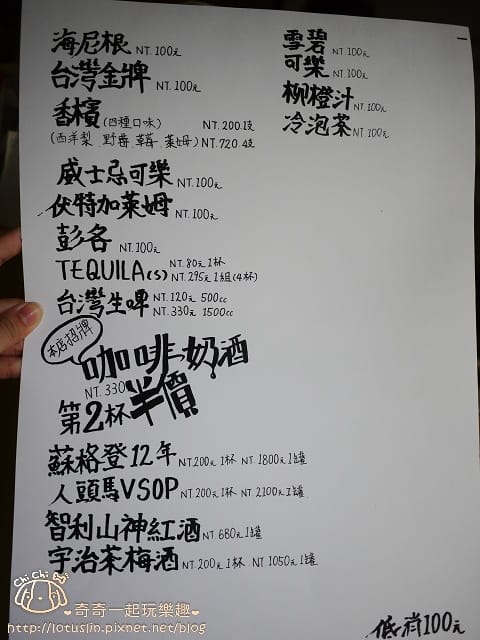 海尼根 NT.100元
台灣金牌 NT.100元
香檳(四種口味) NT.200.1支
(西洋梨.野莓.草莓.萊姆) NT.720.4支
威士忌可樂 NT.100元
伏特加萊姆 NT.100元
彭各 NT.100元
TEQUILA(s) NT.80元1杯
NT.295元1組(4杯)
台灣生啤 NT.120元 500cc
NT.330元 1500cc
本店招牌
咖啡奶酒
NT.330
第2杯半價
蘇格登12年 NT.200元1杯 NT.1800元1罐
人頭馬VSOP NT.200元1杯 NT.2100元1罐
智利山神紅酒 NT 680元1罐
宇治茶梅酒 NT.200元1杯 NT 1050元1罐
雪碧 NT.100元
可樂 NT.100元
柳橙汁 NT.100元
冷泡茶 NT.100元
低消100元
Chi Chi
奇奇一起玩樂趣
http://lotuslin.pixnet.net/blog